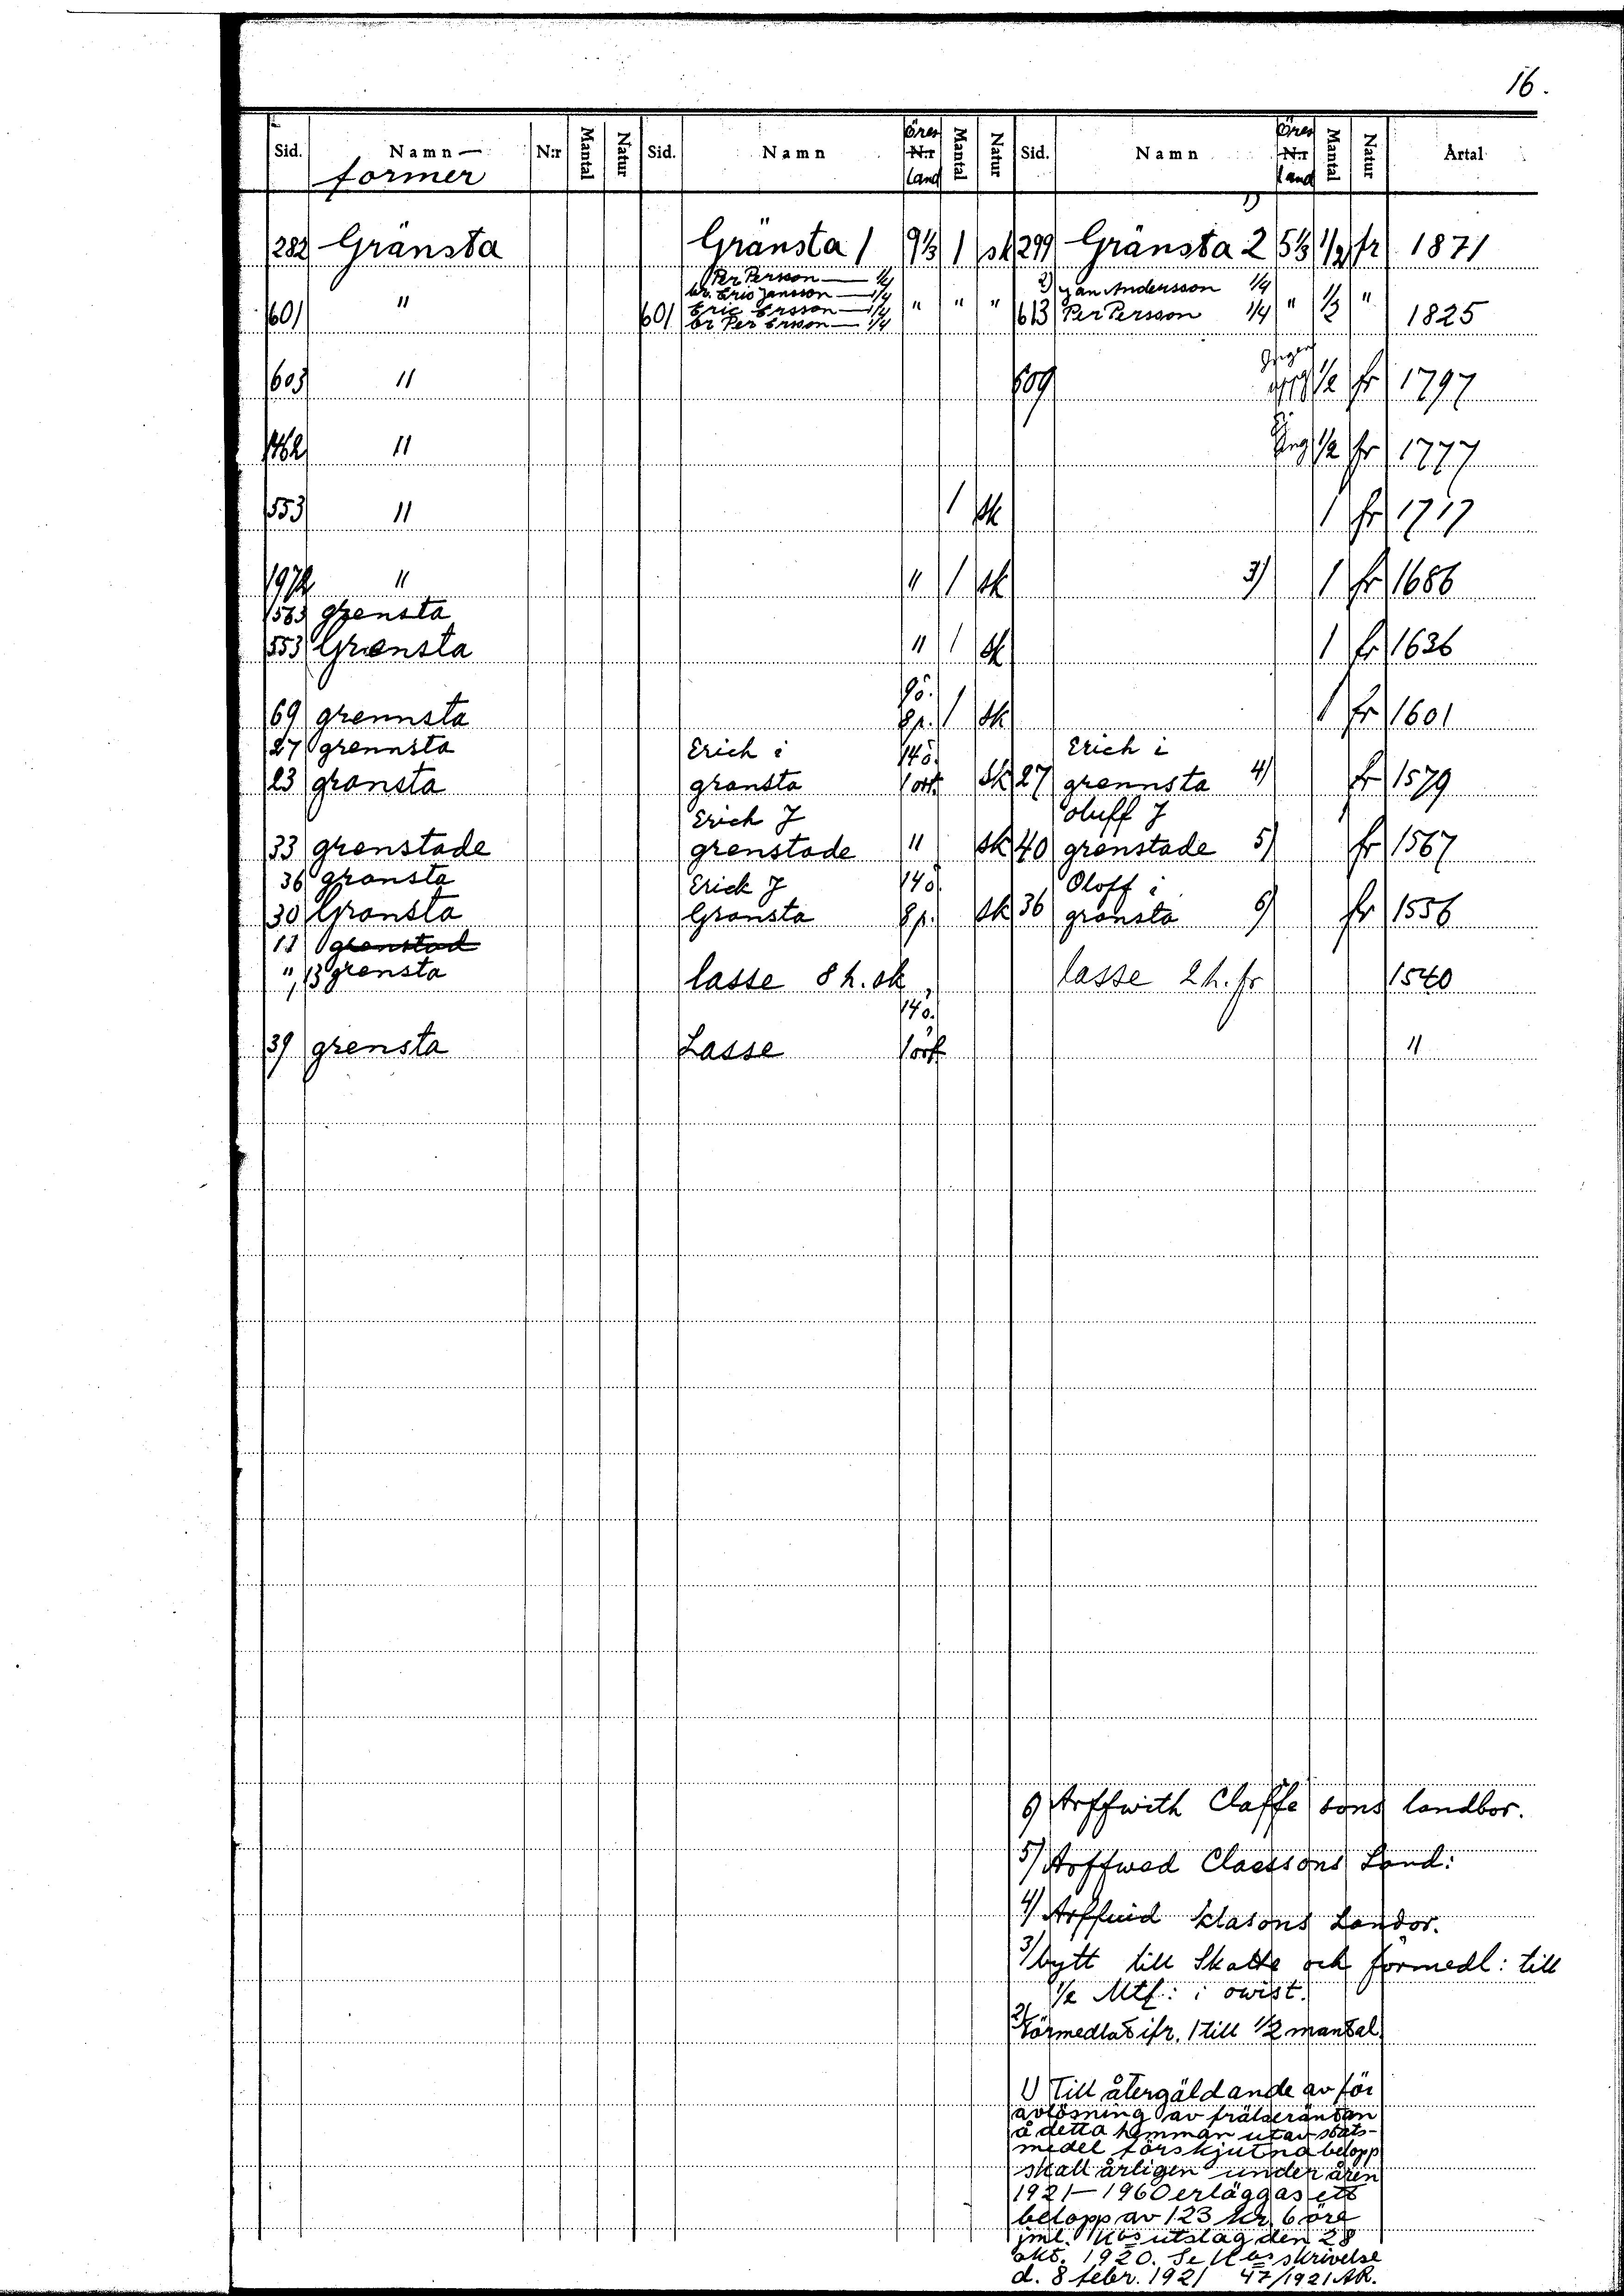 16.
Sid. Namn- N:r Mantal Natur Sid. Namn Öres N:r land Mantal Natur Sid. Namn Öres N:r land Mantal Natur Årtal
former
1)
282 Gränsta Gränsta 1 9⅓ 1 sk 299 Gränsta 2 5⅓ 1/2 fr 1871
Per Persson — 1/4
br. Eric Jansson — 1/4 2) Jan Andersson 1/4
601 " 601 Eric Ersson — 1/4 " " " 613 Per Persson 1/4 " 1/2 " 1825
br Per Ersson — 1/4
603 " 609 1/2 fr 1797
1462 " 1/2 fr 1777
553 " 1 sk 1 fr 1717
1972 " " 1 sk 3) 1 fr 1686
1563 grensta
553 Grensta " 1 sk 1 fr 1636
9ö.
69 grennsta 8p. 1 sk 1 fr 1601
27 grennsta Erich i 14ö. Erich i
23 gransta gransta 1ört. sk 27 grennsta 4) fr 1579
Erich J oluff J
33 grenstade grenstade " sk 40 grenstade 5) fr 1567
36 gransta Erick J 14ö. Oloff i
30 Gransta Gransta 8p. sk 36 gransta 6) fr 1556
11 grenstad
", 13 grensta lasse 8 h. sk lasse 2 h. fr 1540
14ö.
39 grensta Lasse 1ört "
6) Arffwith Claffe sons landbor.
5) Arffwad Claessons Land:
4) Arffuid klasons Landor.
3) bytt till Skatte och förmedl: till
1/2 Mtl: i owist.
2) Förmedlat ifr. 1 till 1/2 mantal
1) Till återgäldande av för
avlösning av frälseräntan
å detta hemman utav stats-
medel förskjutna belopp
skall årligen under åren
1921—1960 erläggas ett
belopp av 123 kr. 6 öre
jml. Kbs utslag den 28
okt. 1920. Se Kbs skrivelse
d. 8 febr. 1921 47/1921 AR.